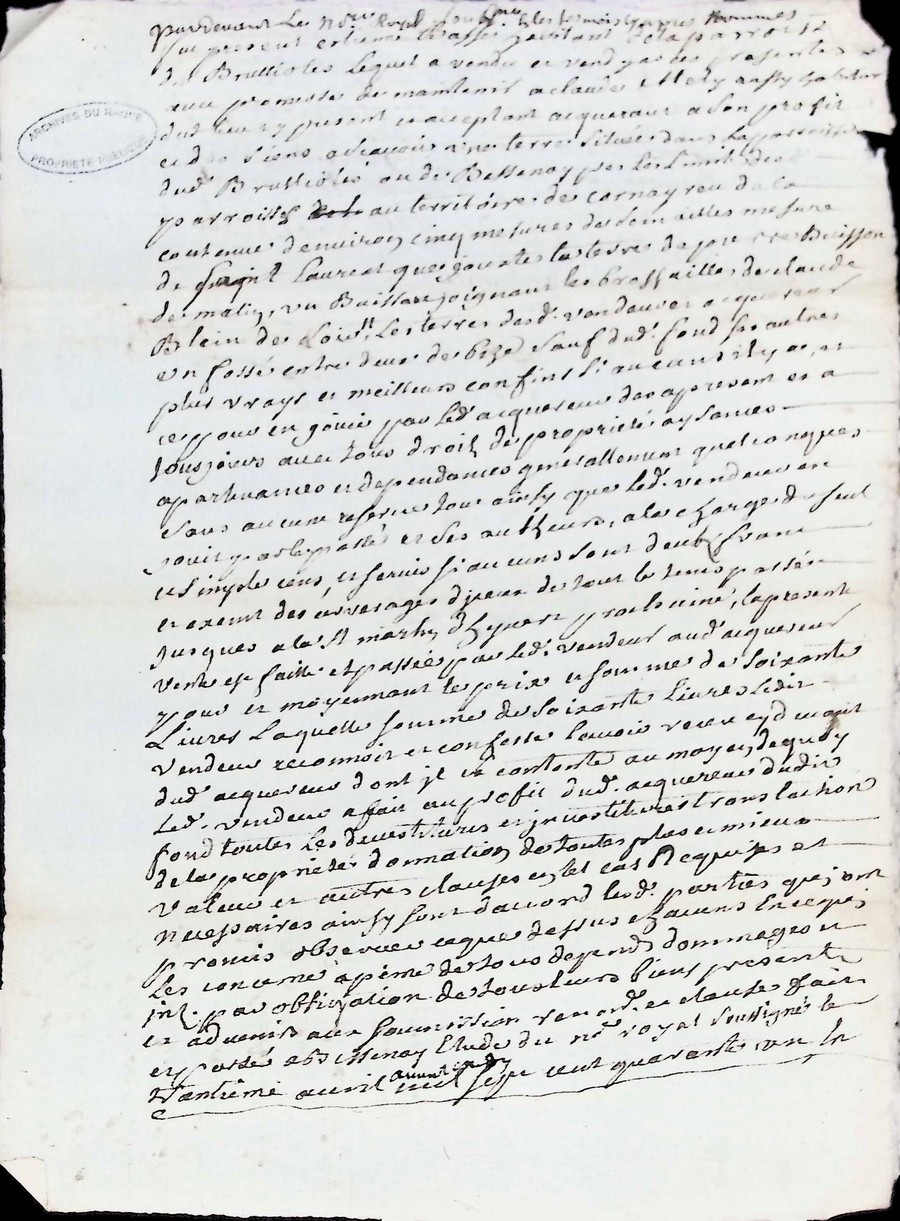 ARCHIVES DU RHÔNE
PROPRIÉTÉ PUBLIQUE
Pardevant Les No.re Royal sous.né & les tesmoins apres nommés
fut present estienne habitant de la parroisse
de Brussiolles lequel a vendu et vend par ces presentes
avec promesse de maintenir a claude habitant
dud. lieu cy present et acceptant acquereur a son profit
et des siens ascavoir une terre située dans la parroisse
dud. Brussiolé ou de Bessenay pes les Limit desd.
parroisses au territoire de cornayre ou de la
contenue d'environ cinq mesures de semailles mesure
de saint Laurent que jouxte la terre de pierre Buisson
de matin, un Buisson joignant les brossailles de claude
Blain de soir, Les terres desd. vendeur et acquereur
un fossé entre deux de bize sauf dud. fond ses autres
plus vrays et meilleurs confins si aucuns il y a, et
ce pour en jouir par led. acquereur des apresent et a
tousjours avec tous droits de proprieté aysances
apartenances et dependances generallement quelconques
sans aucune reserve tout ainsy que led. vendeur en
jouit par le passé et ses autheurs, a la charge du seul
et simple cens, et servis si aucuns sont deubs franc
et exempt des arrerages d'jceux de tout le temps passé
jusques a la St martin d'hyvert prochaine, la presente
vente est faitte et passée par led. vendeur aud. acquereur
pour et moyennant le prix et somme de soixante
Livres Laquelle somme de soixante Livres Ledit
vendeur reconnoit et confesse l'avoir receue cy devant
dud. acquereur dont jl se contente au moyen de quoy
Led. vendeur a fait au profit dud. acquereur dudit
fond toutes Les devestitures et jnvestitures translation
de la proprieté donnation de toutes plus et mieux
valeur et autres clauses en tel cas Requises et
necessaires ainsy sont d'accord lesd. parties qui ont
promis observer ce que dessus chacuns En ce qui
Les concerne a peine de tous depends dommages et
int. par obligation de tous leurs biens presents
et advenir aux soumission renond. et clauses fait
et passé a Bessenay Etude du no.re royal soussigné le
vantieme avril avant midy mil sept cent quarante un In